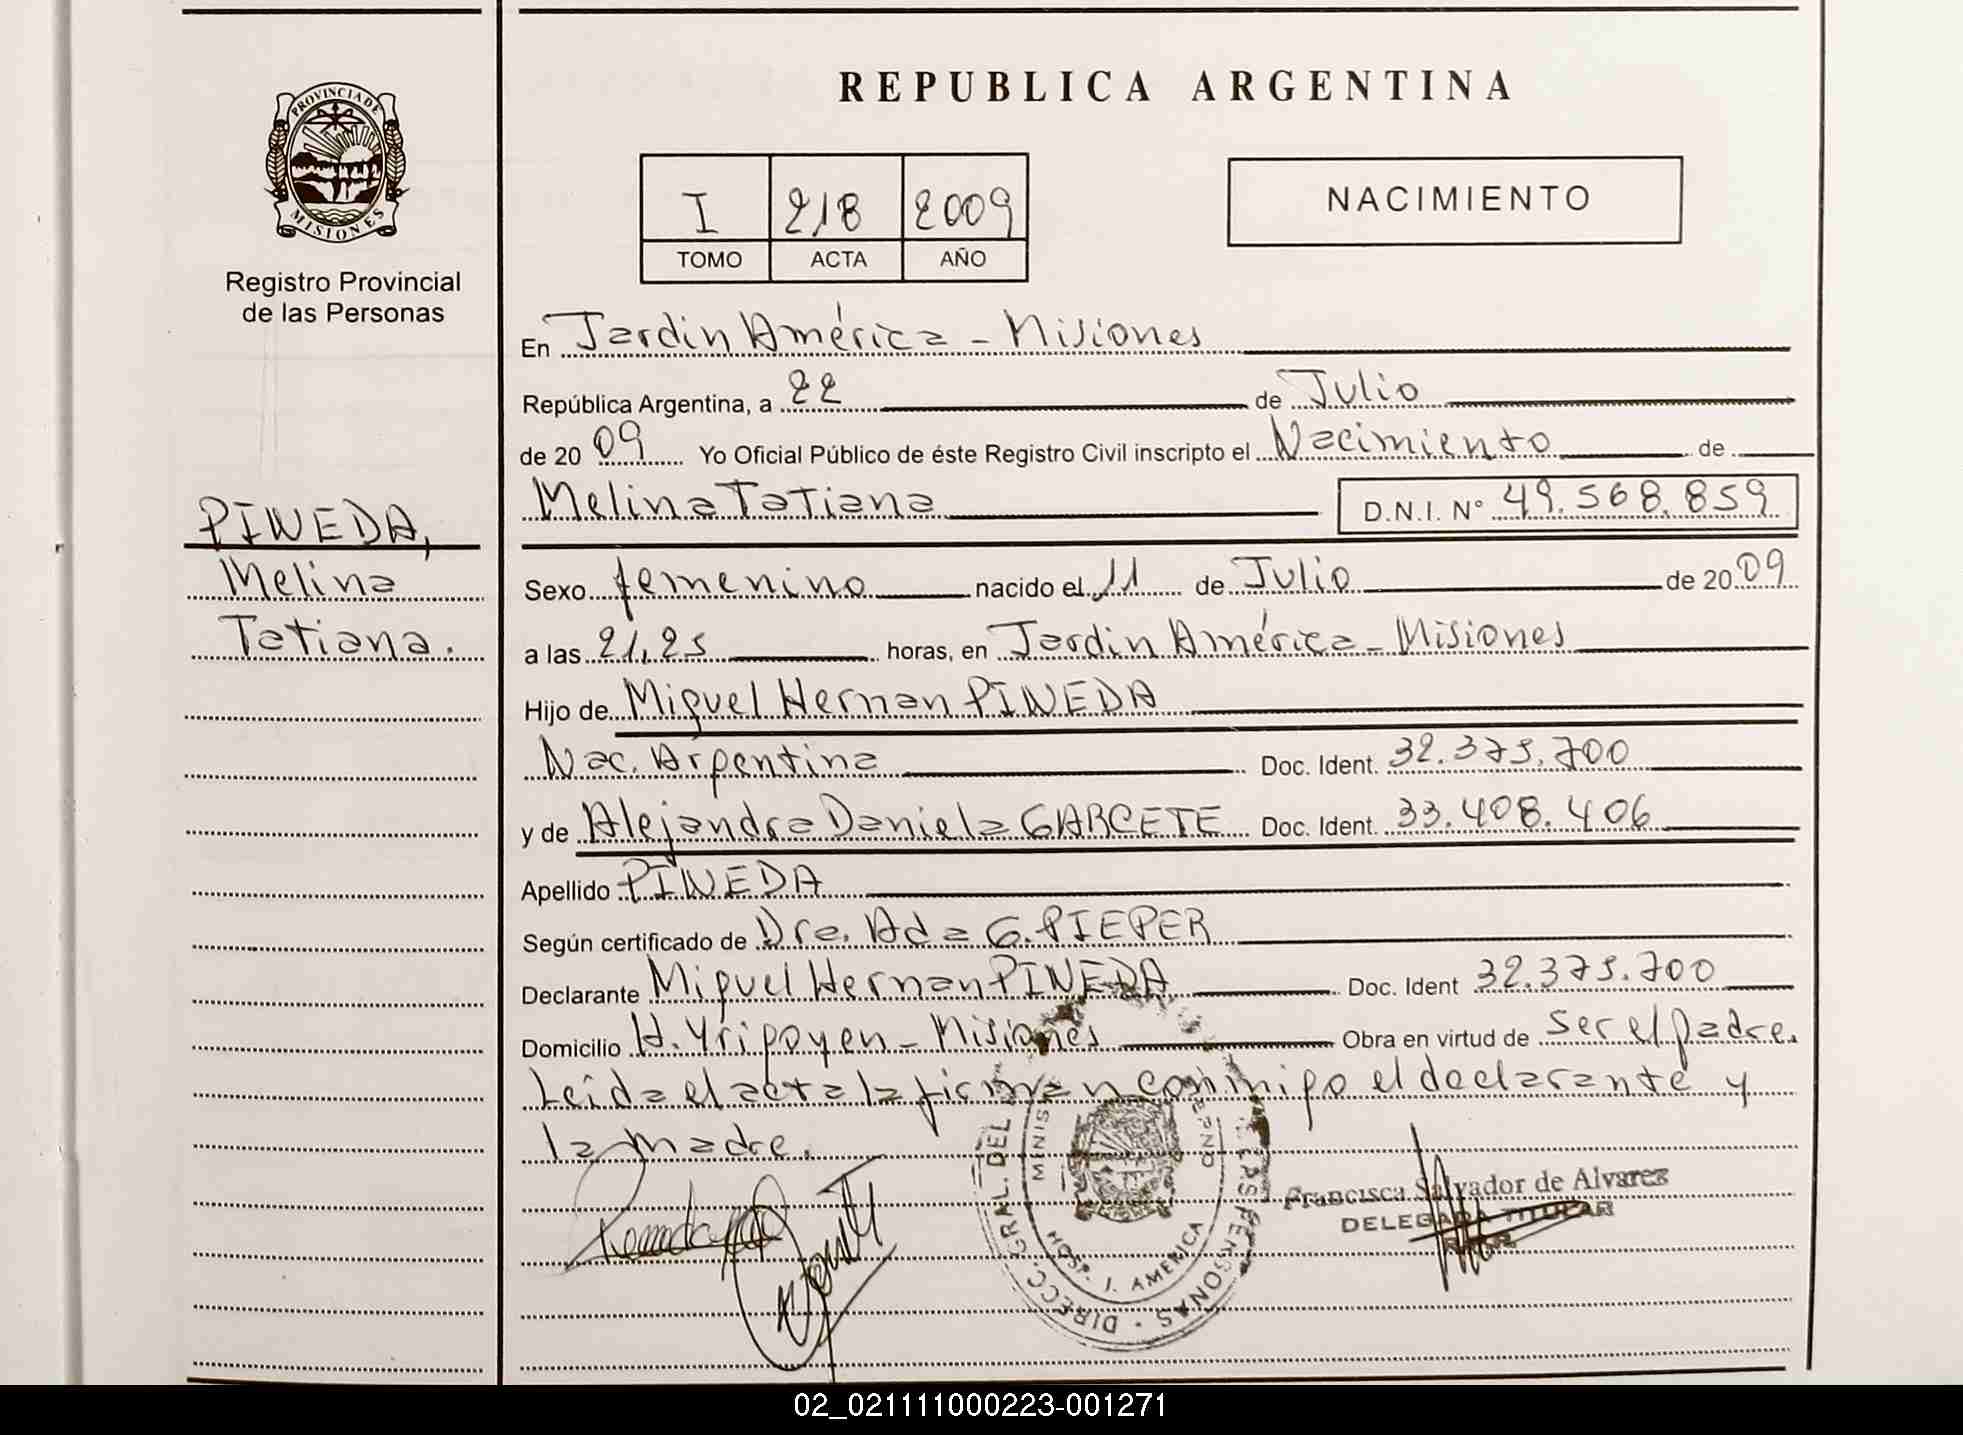 REPUBLICA ARGENTINA
PROVINCIA DE
MISIONES
Registro Provincial
de las Personas
I 218 2009
TOMO ACTA AÑO
NACIMIENTO
En Jardin América - Misiones
República Argentina, a 22 de Julio
de 2009 Yo Oficial Público de éste Registro Civil inscripto el Nacimiento de
Melina Tatiana D.N.I. N° 49.568.859
PINEDA,
Melina
Tatiana.
Sexo femenino nacido el 11 de Julio de 2009
a las 21,25 horas, en Jardin América - Misiones
Hijo de Miguel Hernan PINEDA
Nac. Argentina Doc. Ident. 32.375.700
y de Alejandra Daniela GARCETE Doc. Ident. 33.408.406
Apellido PINEDA
Según certificado de Dra. Ada G. PIEPER
Declarante Miguel Hernan PINEDA Doc. Ident 32.375.700
Domicilio H. Yrigoyen - Misiones Obra en virtud de ser el padre.
Leída el acta la firman conmigo el declarante y
la madre.
DIRECC. GRAL. DEL
PERSONAS
MINIS
HOSP. J. AMERICA
Francisca Salvador de Alvarez
DELEGADA TITULAR
02_021111000223-001271